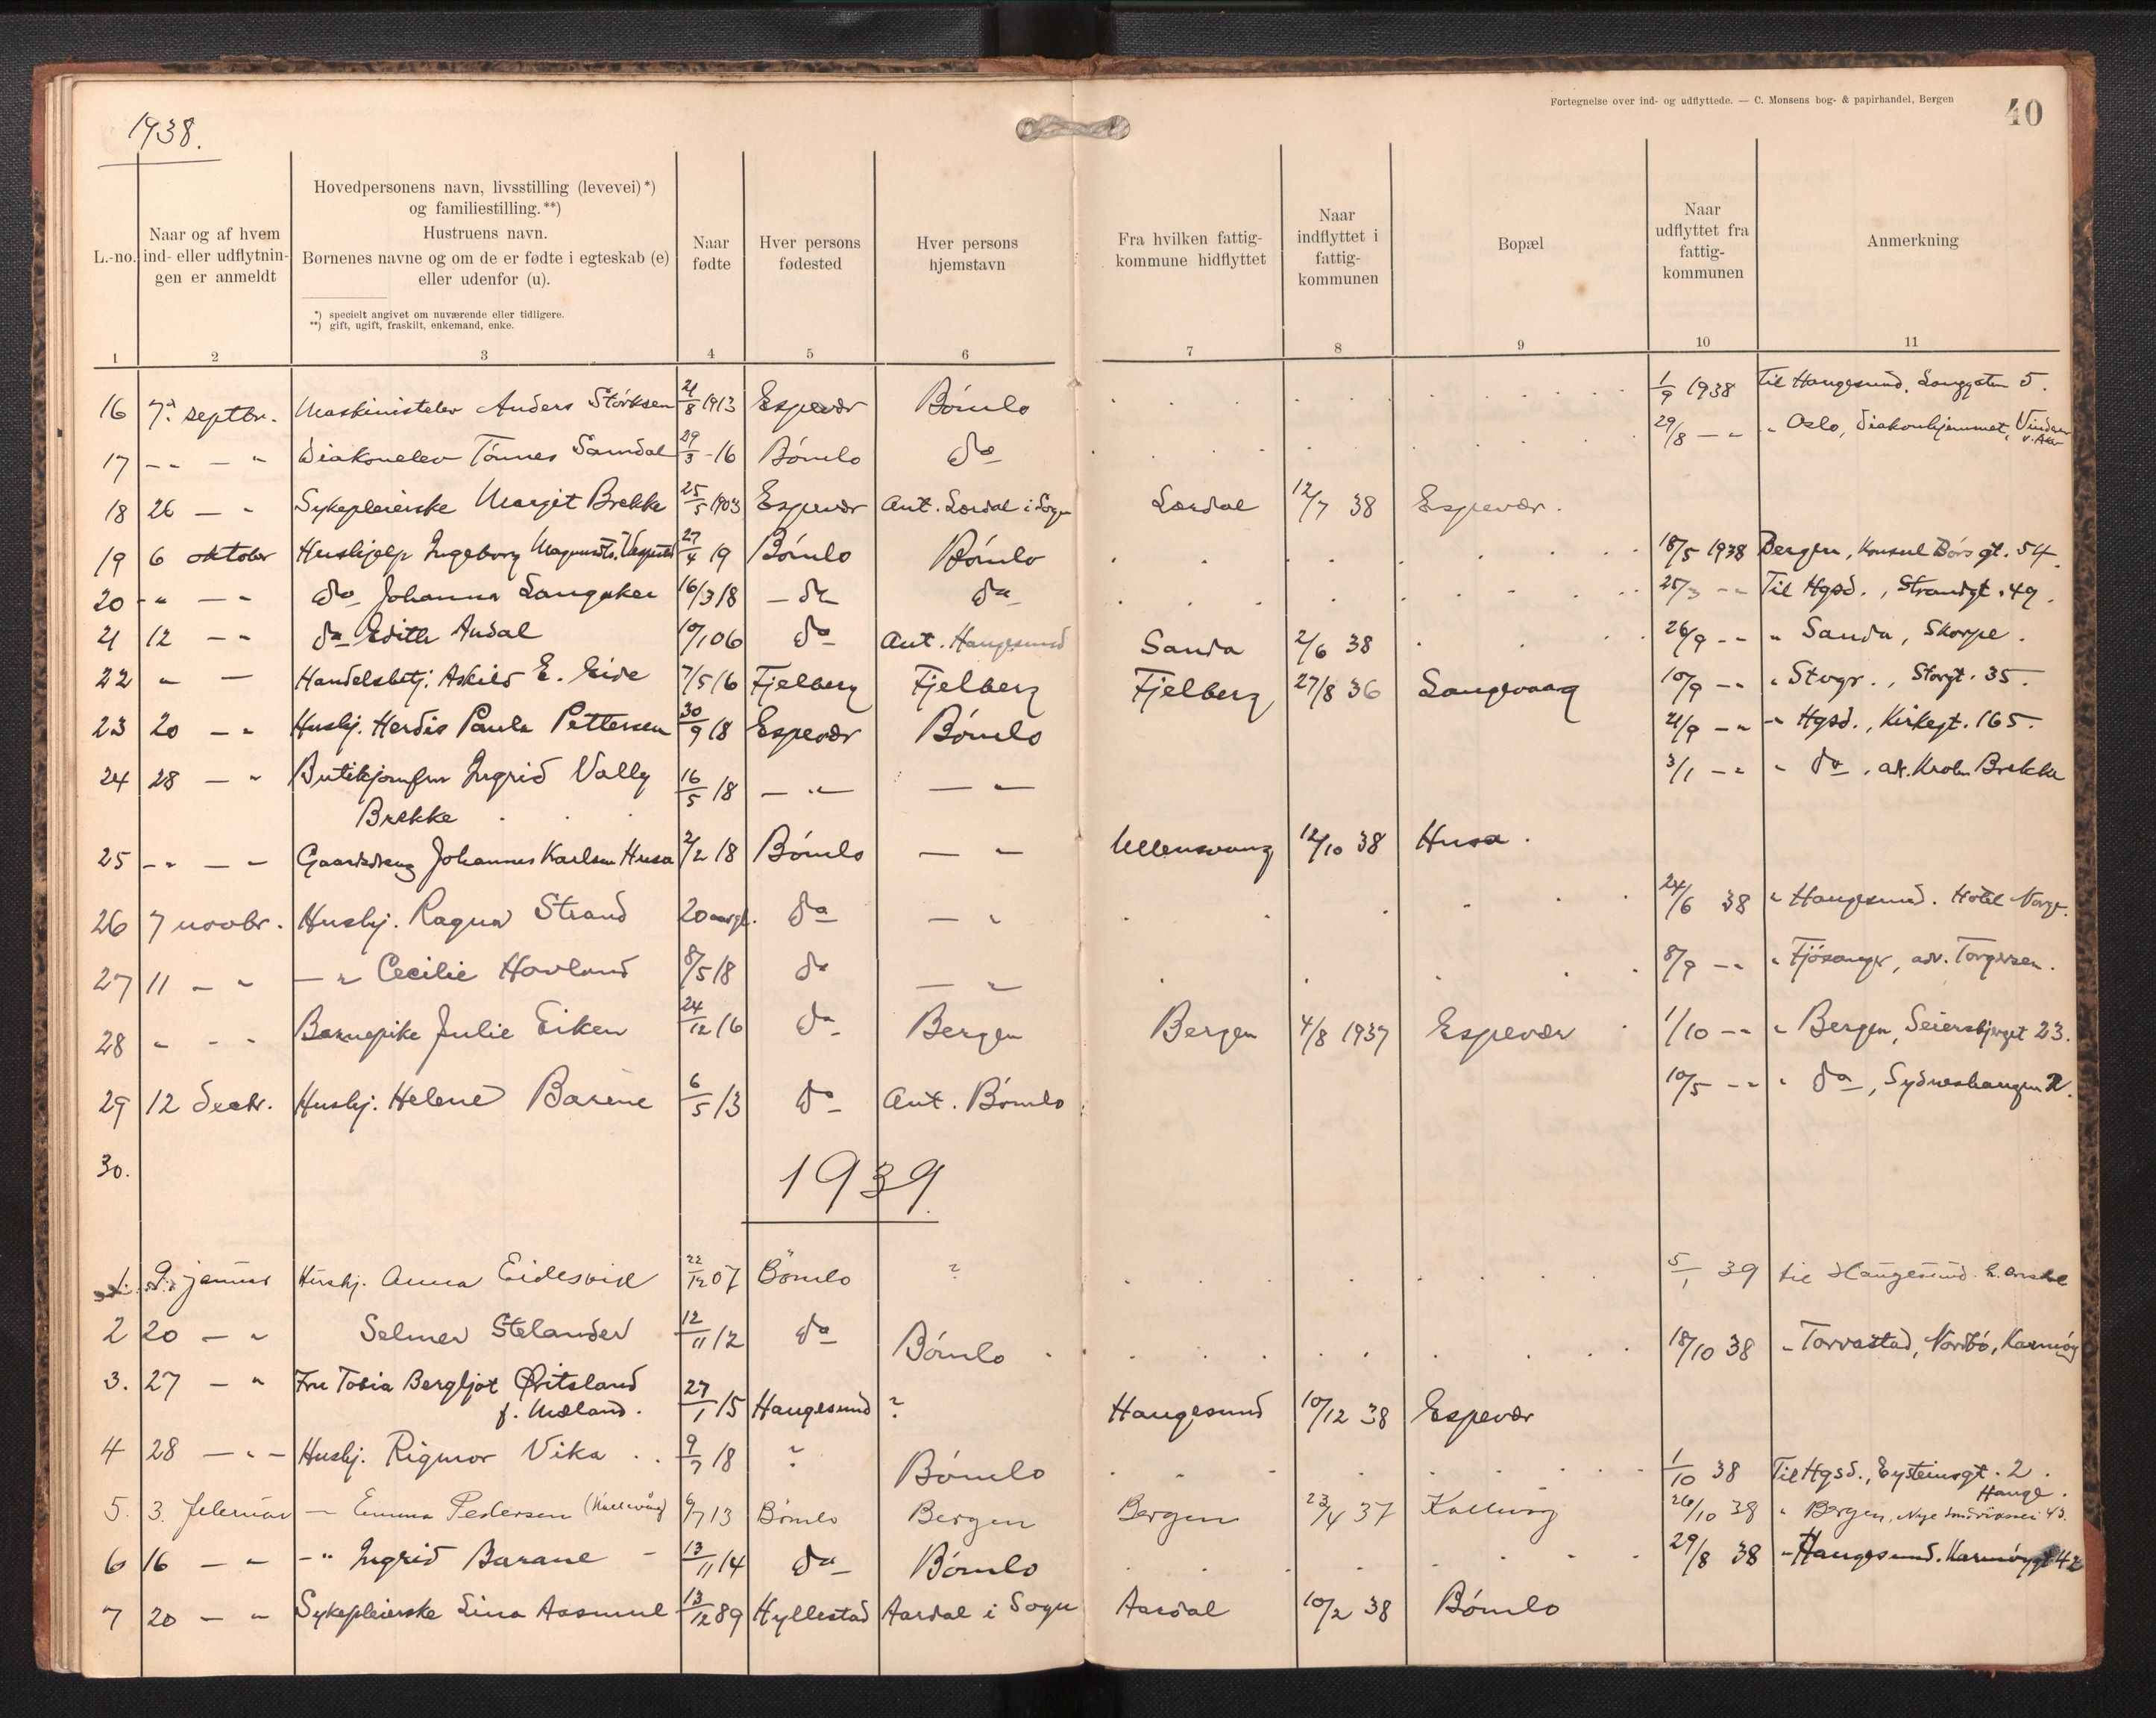 1938.
Fortegnelse over ind- og udflyttede. — C. Monsens bog- & papirhandel, Bergen
40
L.-no.
Naar og af hvem
ind- eller udflytnin-
gen er anmeldt
Hovedpersonens navn, livsstilling (levevei)*)
og familiestilling.**)
Hustruens navn.
Børnenes navne og om de er fødte i egteskab (e)
eller udenfor (u).
*) specielt angivet om nuværende eller tidligere.
**) gift, ugift, fraskilt, enkemand, enke.
Naar
fødte
Hver persons
fødested
Hver persons
hjemstavn
Fra hvilken fattig-
kommune hidflyttet
Naar
indflyttet i
fattig-
kommunen
Bopæl
Naar
udflyttet fra
fattig-
kommunen
Anmerkning
1 2 3 4 5 6 7 8 9 10 11
16 7. septbr. Maskinistelev Anders Störksen 21/8 1913 Espevær Bömlo 1/9 1938 Til Haugesund, 5.
17 -"- — " Diakonelev Tönnes Samdal 29/3 -16 Bömlo do 29/8 — " " Oslo, Diakonhjemmet, Vinderen
v. Aker
18 26 — " Sykepleierske Margit Brekke 25/5 1903 Espevær Ant. Lærdal i Sogn Lærdal 12/7 38 Espevær.
19 6 oktober Hushjelp Ingeborg 27/4 19 Bömlo Bömlo 18/5 1938 Bergen, Konsul Börs gt. 54.
20 -"- — " do Johanna Langaker 16/3 18 — do do 25/3 — " Til Hgsd., Strandgt. 49.
21 12 — " do Edith Audal 10/1 06 do Ant. Haugesund Sanda 2/6 38 26/9 — " " Sanda, Skorpe.
22 " — Handelsbetj. Askild E. Eide 7/5 16 Fjelberg Fjelberg Fjelberg 27/8 36 Langevaag 10/9 — " " Stvgr., Storgt. 35.
23 20 — " Hushj. Herdis Paula Pettersen 30/9 18 Espevær Bömlo 21/9 — " " Hgsd., Kirkegt. 165.
24 28 — " Butikjomfru Ingrid Vally 16/5 18 — " — — " 3/1 — " " do, ad. Brekke
Brekke
25 -"- — " Gaardsdreng Johannes Karlsen Husa 2/2 18 Bömlo — " Ullensvang 12/10 38 Husa.
26 7 novbr. Hushj. Ragna Strand 20 aargl. do — " 24/6 38 " Haugesund. Hotel Norge.
27 11 — " — " Cecilie Hovland 8/5 18 do — " 8/9 — " " Fjösanger, adv. Torgersen.
28 " - " Barnepike Julie Eiken 24/12 16 do Bergen Bergen 4/8 1937 Espevær 1/10 — " " Bergen, Seiersbjerget 23.
29 12 decbr. Hushj. Helene Barane 6/5 13 do Ant. Bömlo 10/5 — " " do, Sydneshaugen 2.
30.
1939.
1. 9. januar Hushj. Anna Eidesvik 22/12 07 Bömlo ? 5/1 39 til Haugesund.
2 20 — " Selmer Stelander 12/11 12 do Bömlo 18/10 38 " Torvastad, Nordbö, Karmöy
3. 27 — " Fru Tobia Bergljot Øritsland 27/1 15 Haugesund ? Haugesund 10/12 38 Espevær
f. Mæland.
4 28 — " — Hushj. Rigmor Vika 9/7 18 ? Bömlo 1/10 38 Til Hgsd., Eysteinsgt. 2.
Hauge.
5. 3. februar — Emma Pedersen (Kallevåg) 6/7 13 Bömlo Bergen Bergen 23/4 37 Kallevåg 26/10 38 " Bergen, Nye 43.
6 16 — " — " Ingrid Barane 13/11 14 do Bömlo 29/8 38 " Haugesund. Karmöygt 42
7 20 — " Sykepleierske Lina Aasmul 13/12 89 Hyllestad Aardal i Sogn Aardal 10/2 38 Bömlo